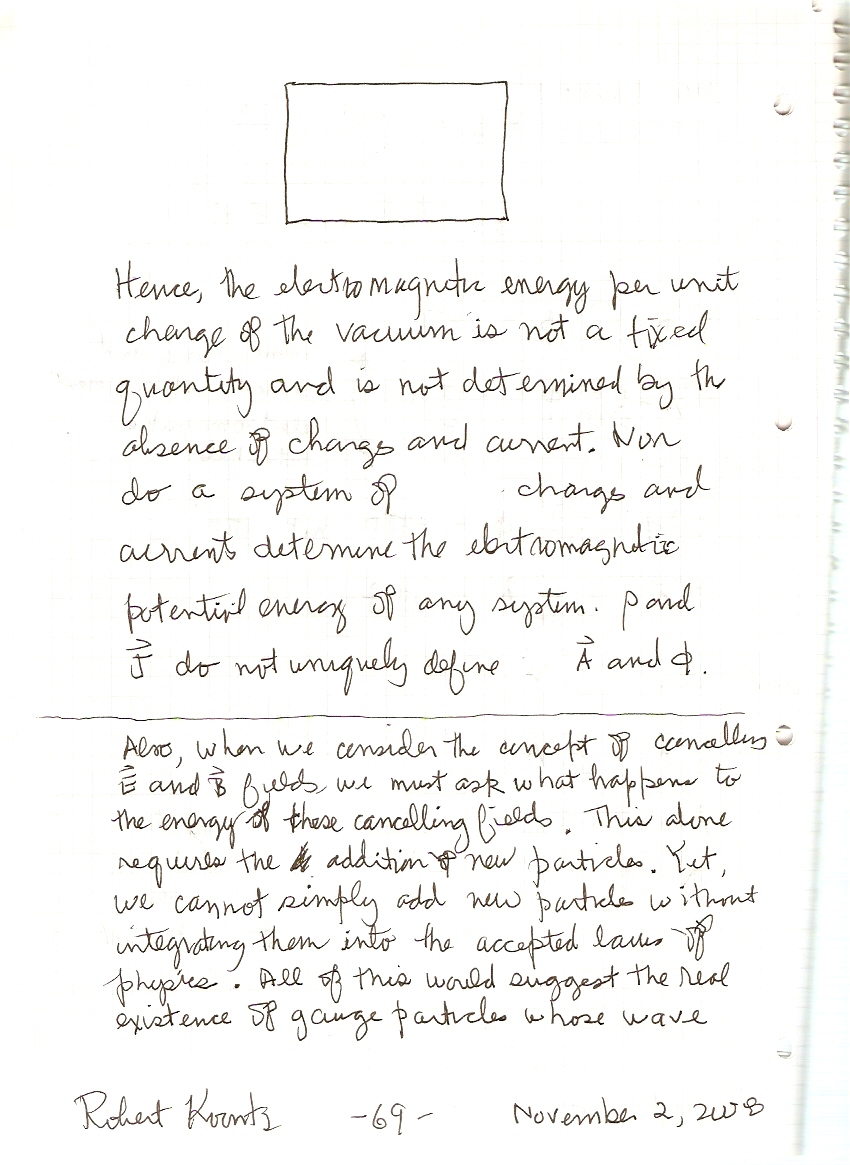 Hence, the electromagnetic energy per unit
charge of the vacuum is not a fixed
quantity and is not determined by the
absence of charges and current. Nor
do a system of charges and
currents determine the electromagnetic
potential energy of any system. ρ and
J⃗ do not uniquely define A⃗ and Φ.
Also, when we consider the concept of cancelling
E⃗ and B⃗ fields we must ask what happens to
the energy of these cancelling fields. This alone
requires the addition of new particles. Yet,
we cannot simply add new particles without
integrating them into the accepted laws of
physics. All of this would suggest the real
existence of gauge particles whose wave
Robert Koontz -69- November 2, 2008